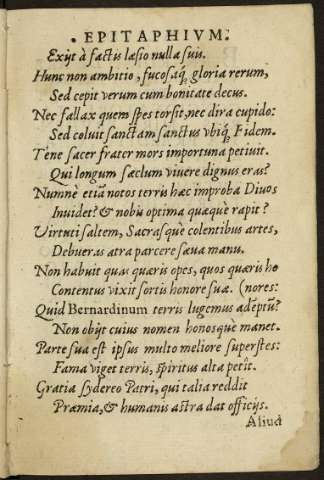 . EPITAPHIVM.
Exijt à factis læsio nulla suis.
Hunc non ambitio, fucosaq́; gloria rerum,
Sed cepit verum cum bonitate decus.
Nec fallax quem spes torsit, nec dira cupido:
Sed coluit sanctam sanctus vbiq́; Fidem.
Téne sacer frater mors importuna petiuit.
Qui longum sæclum viuere dignus eras?
Nunnè etiā notos terris hæc improba Diuos
Inuidet? & nobis optima quæque rapit?
Virtuti saltem, Sacrasque colentibus artes,
Debueras atra parcere sæua manu.
Non habuit quas quæris opes, quos quæris ho
Contentus vixit sortis honore suæ. (nores:
Quid Bernardinum terris lugemus adéptū?
Non obijt cuius nomen honosque manet.
Parte sua est ipsus multo meliore superstes:
Fama viget terris, spiritus alta petit.
Gratia sydereo Patri, qui talia reddit
Præmia, & humanis astra dat officijs.
Aliud